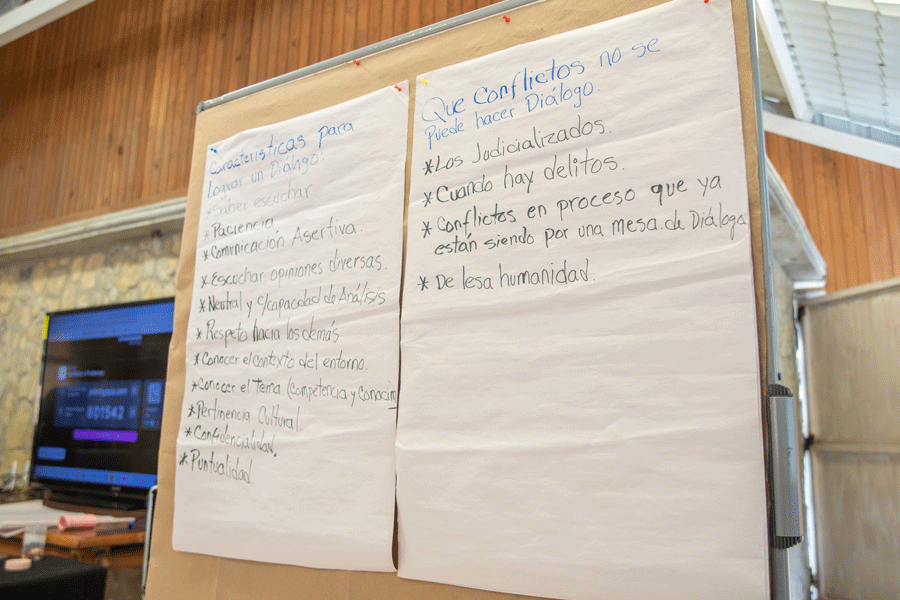 Caracteristicas para
lograr un Diálogo.
*Saber escuchar
*Paciencia,
*Comunicación Asertiva.
*Escuchar opiniones diversas.
*Neutral y c/capacidad de Análisis
*Respeto hacia los demás
*Conocer el contexto del entorno.
*Conocer el Tema. (Competencia y Conocim
*Pertinencia Cultural.
*Confidencialidad.
*Puntualidad.
Que Conflictos no se
Puede hacer Diálogo.
*Los Judicializados.
*Cuando hay delitos.
*Conflictos en proceso que ya
están siendo por una mesa de Diáloga
*De lesa humanidad.
801542